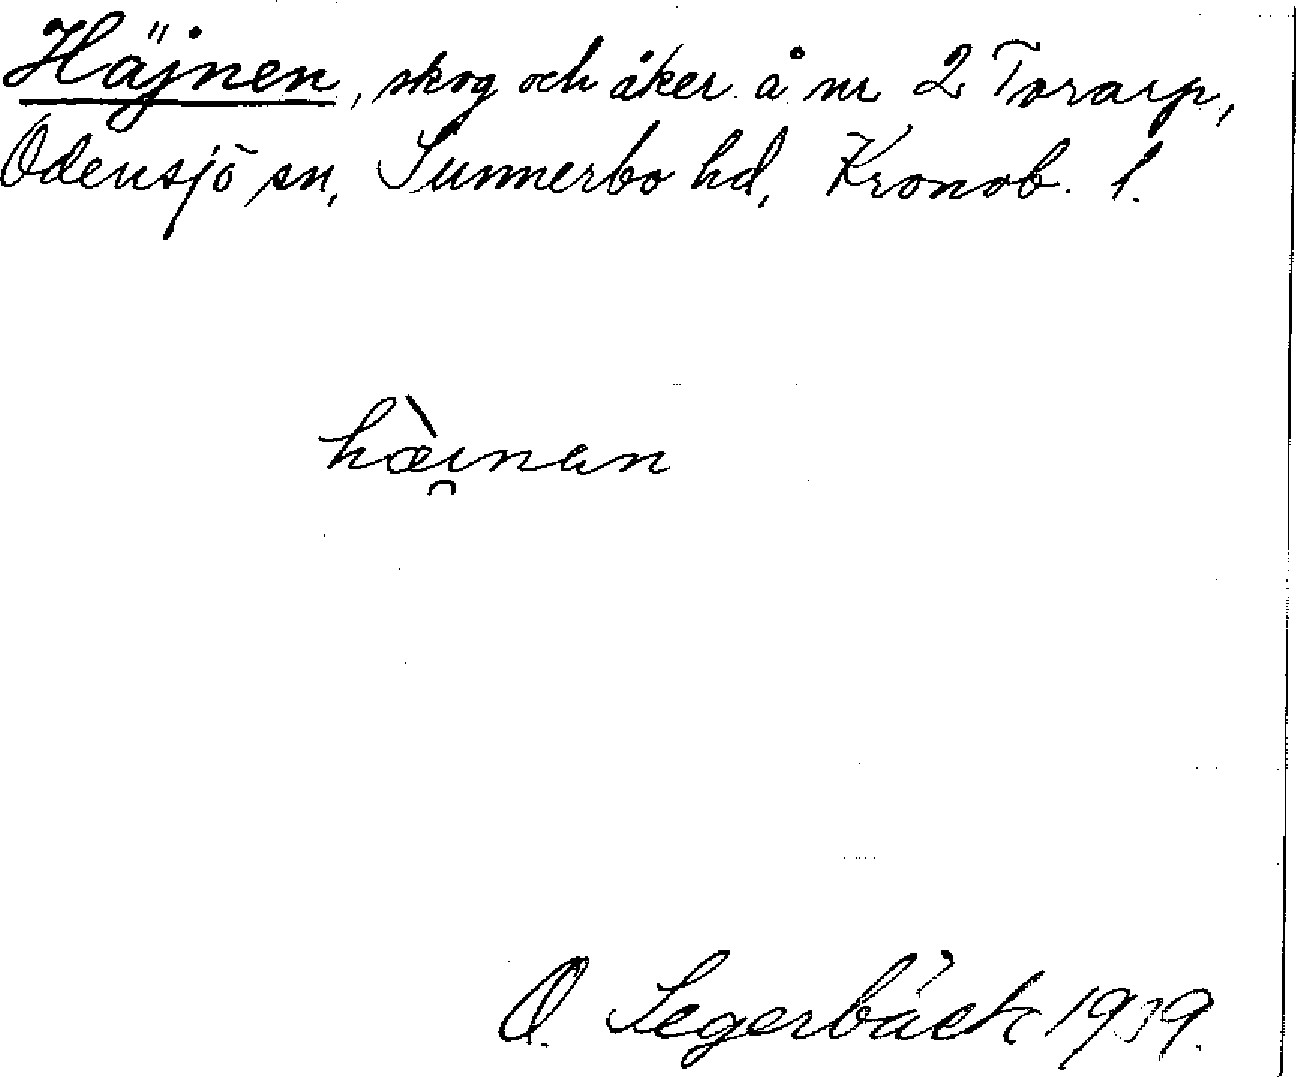 Häjnen, skog och åker å nr 2 Torarp,
Odensjö sn, Sunnerbo hd, Kronob. l.
hæ̀ı̯nan
O. Segerbäck 1939.